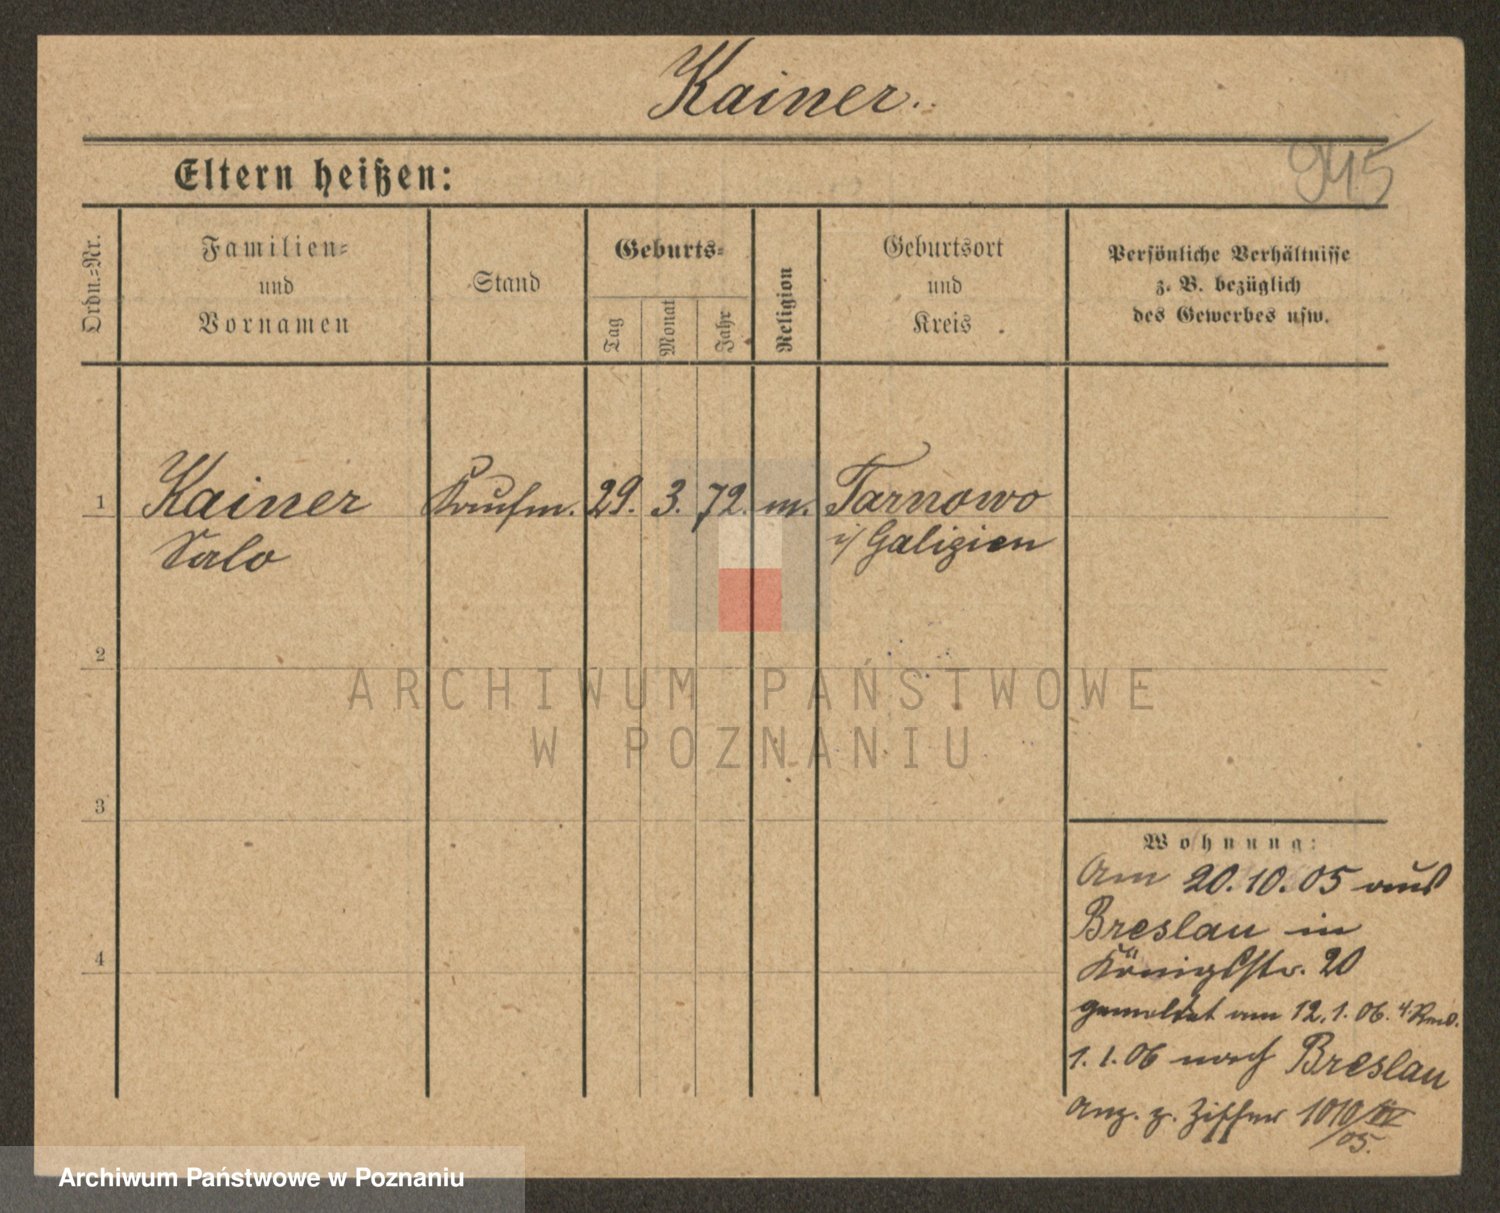 Kainer.
945
Eltern heißen:
Ordn.-Nr.
Familien-
und
Vornamen
Stand
Geburts-
Tag
Monat
Jahr
Religion
Geburtsort
und
Kreis
Persönliche Verhältnisse
z. B. bezüglich
des Gewerbes usw.
1 Kainer Kaufm. 29. 3. 72. m. Tarnowo
Salo i/ Galizien
2
ARCHIWUM PAŃSTWOWE
W POZNANIU
3
Wohnung:
Am 20.10.05 aus
Breslau in
Königsstr. 20
4
gemeldet am 12.1.06. 4.
1.1.06 nach Breslau
Anz. z. Ziffer 1010
05.
Archiwum Państwowe w Poznaniu